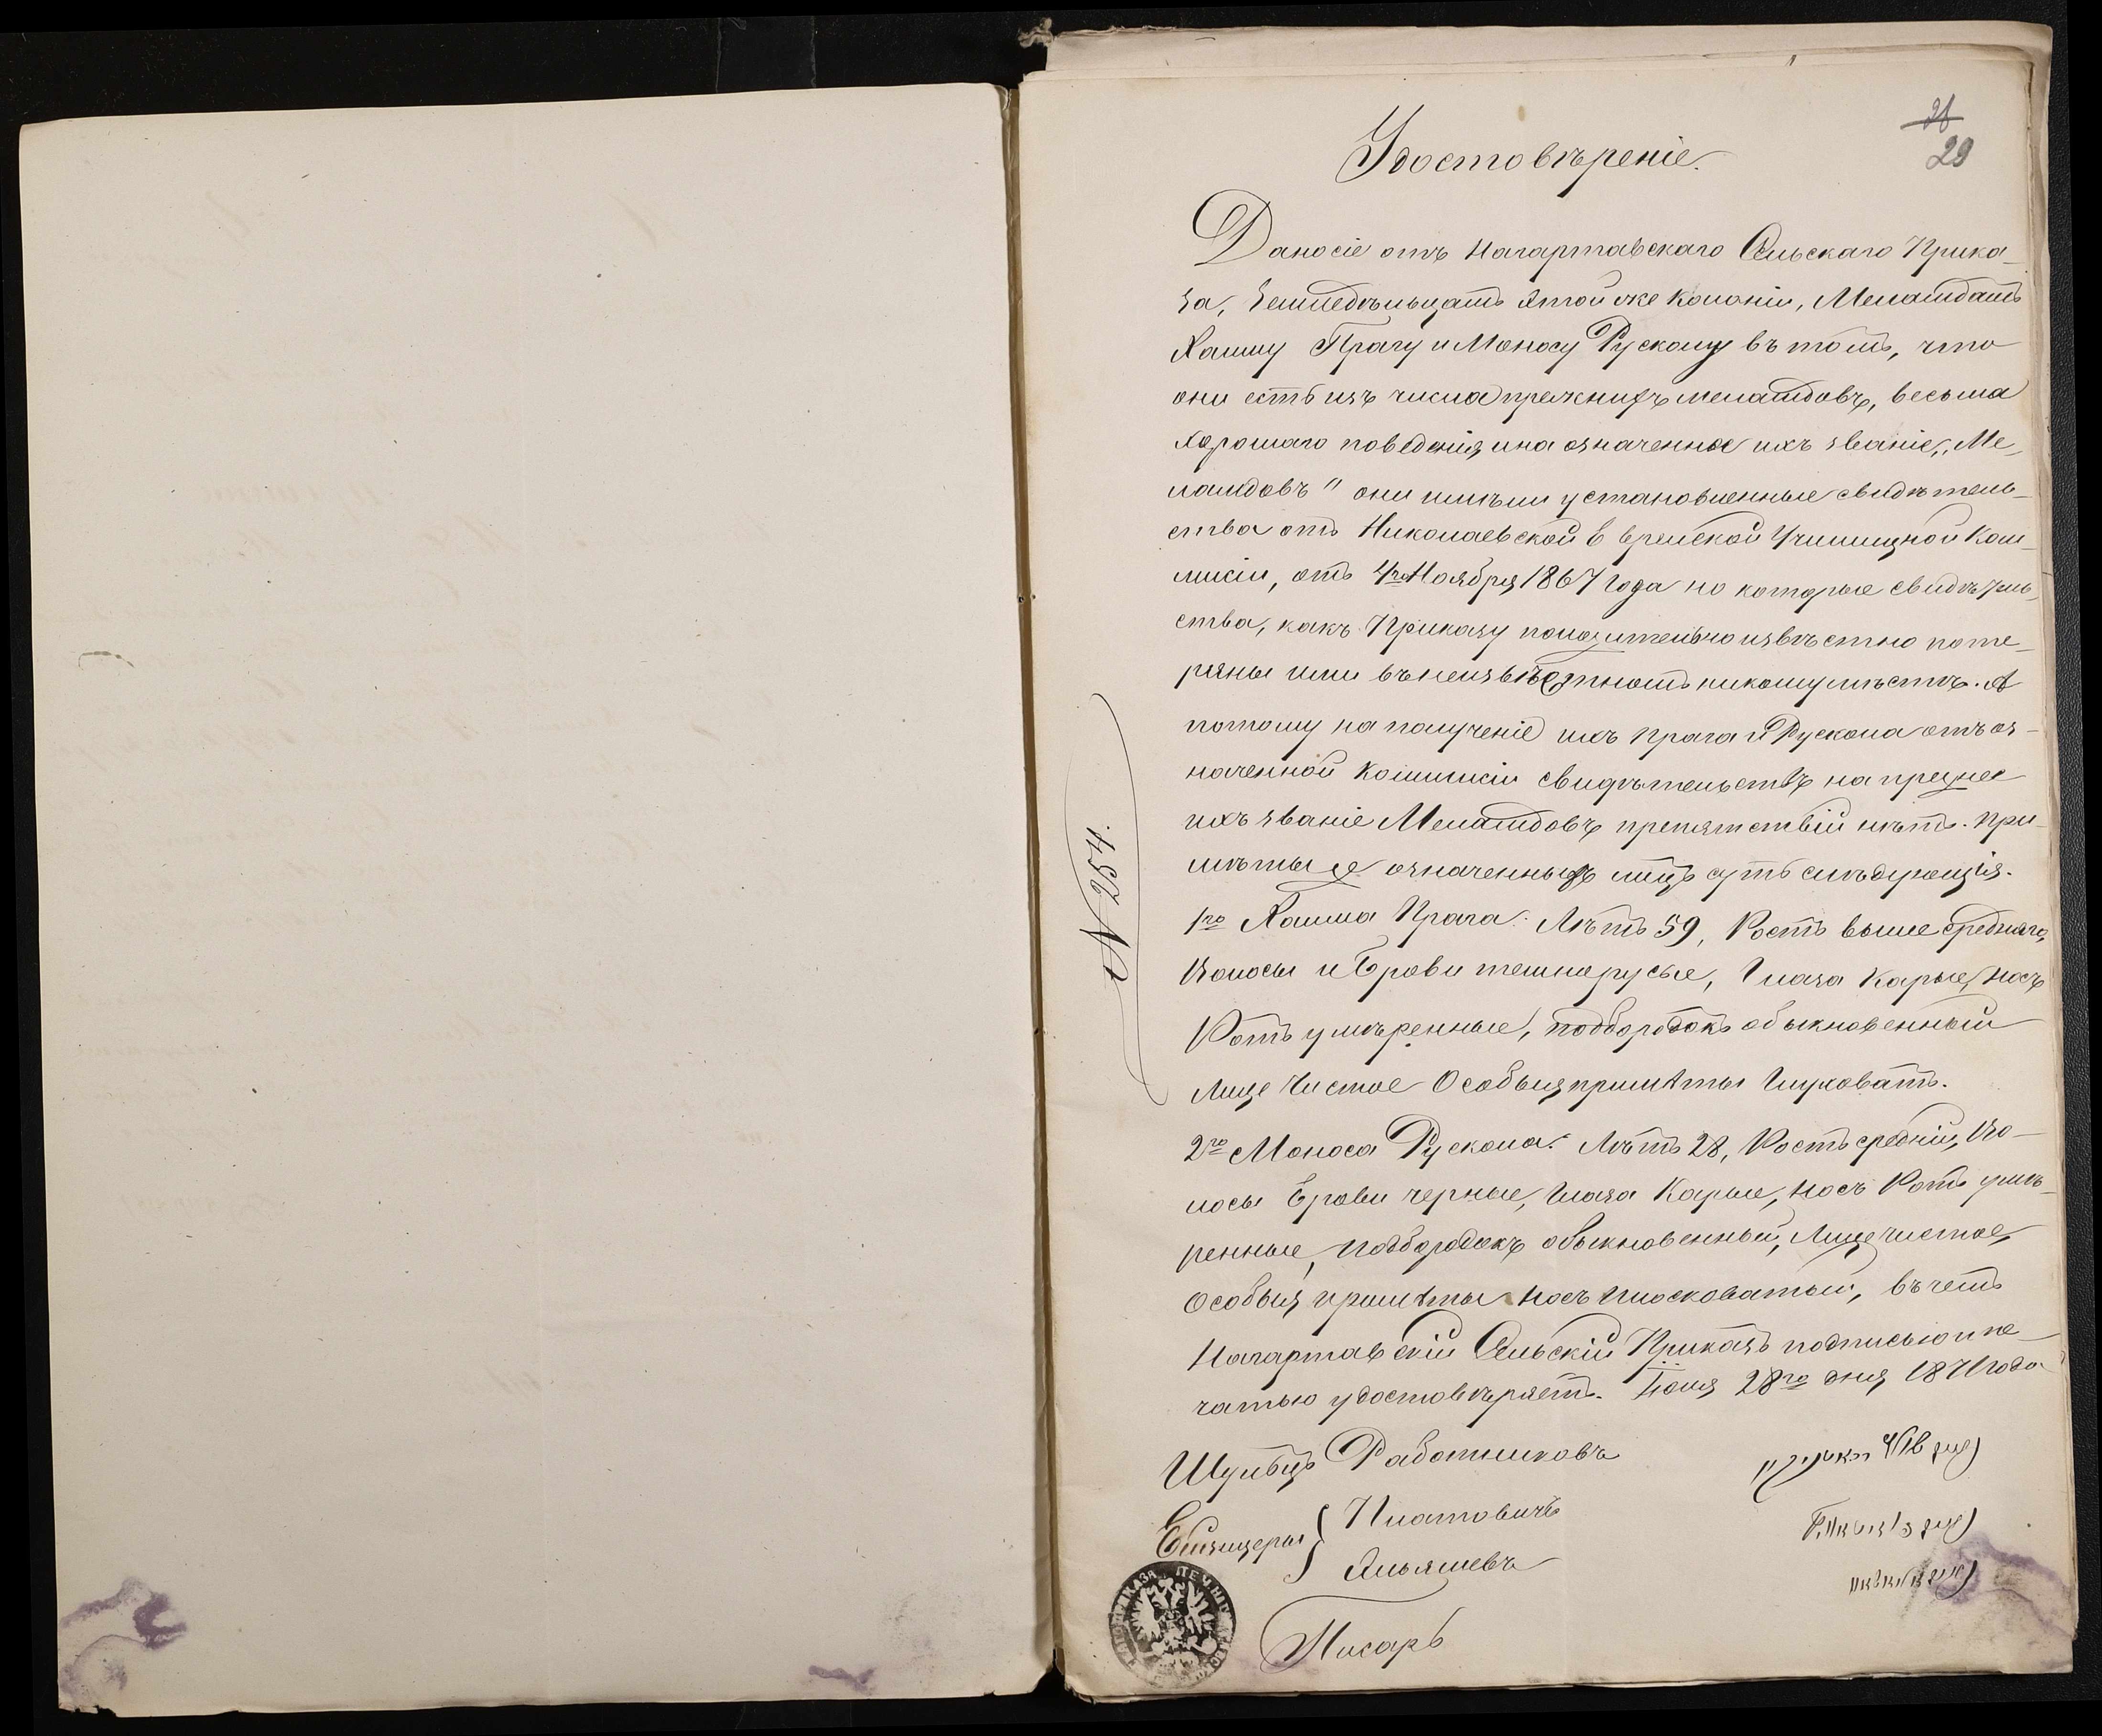 28
29
Удостовѣреніе.
Дано сіе отъ Нагартавскаго Сельскаго Прика-
за, Земледѣльцамъ этой же Колоніи, Меламдамъ
Хаиму Прагу и Моносу Рускому въ томъ, что
они есть изъ числа прежнихъ меламдовъ, весьма
хорошаго поведенія, и на означенное ихъ званіе „Ме-
ламдовъ" они имѣли установленные свидѣтель-
ства отъ Николаевской Еврейской Училищной Ком-
мисіи, отъ 4го Ноября 1867 года но которые свидѣтель-
ства, какъ Приказу положительно извѣстно поте-
ряны ими въ неизвѣстномъ никому мѣстѣ. А
потому на полученіе ихъ Прага и Рускола отъ оз-
наченной Коммисіи свидѣтельствъ на прежнее
ихъ званіе Меламдовъ препятствій нѣтъ. При-
мѣты е означенныхъ лицъ суть слѣдующія.
1го Хаима Прага: Лѣтъ 59, Ростъ выше средняго,
Волосы и брови темнорусые, Глаза Карые, Носъ
Ротъ умѣренные, подбородокъ обыкновенный
Лице Чистое Особыя примѣты Глуховатъ.
2го Моноса Рускола: Лѣтъ 28, Ростъ средній, Во-
лосы брови черные, Глаза Карые, Носъ Ротъ умѣ-
ренные, подбородокъ обыкновенный, Лице чистое,
Особыя примѣты Носъ плосковатый, въ чемъ
Нагартавскій Сельскій Приказъ подписью и пе-
чатью удостовѣряетъ. Іюня 28го дня 1871 года
№ 254.
Шульцъ Работниковъ
Бейзицеры
Платовичъ
Альяшевъ
Писарь